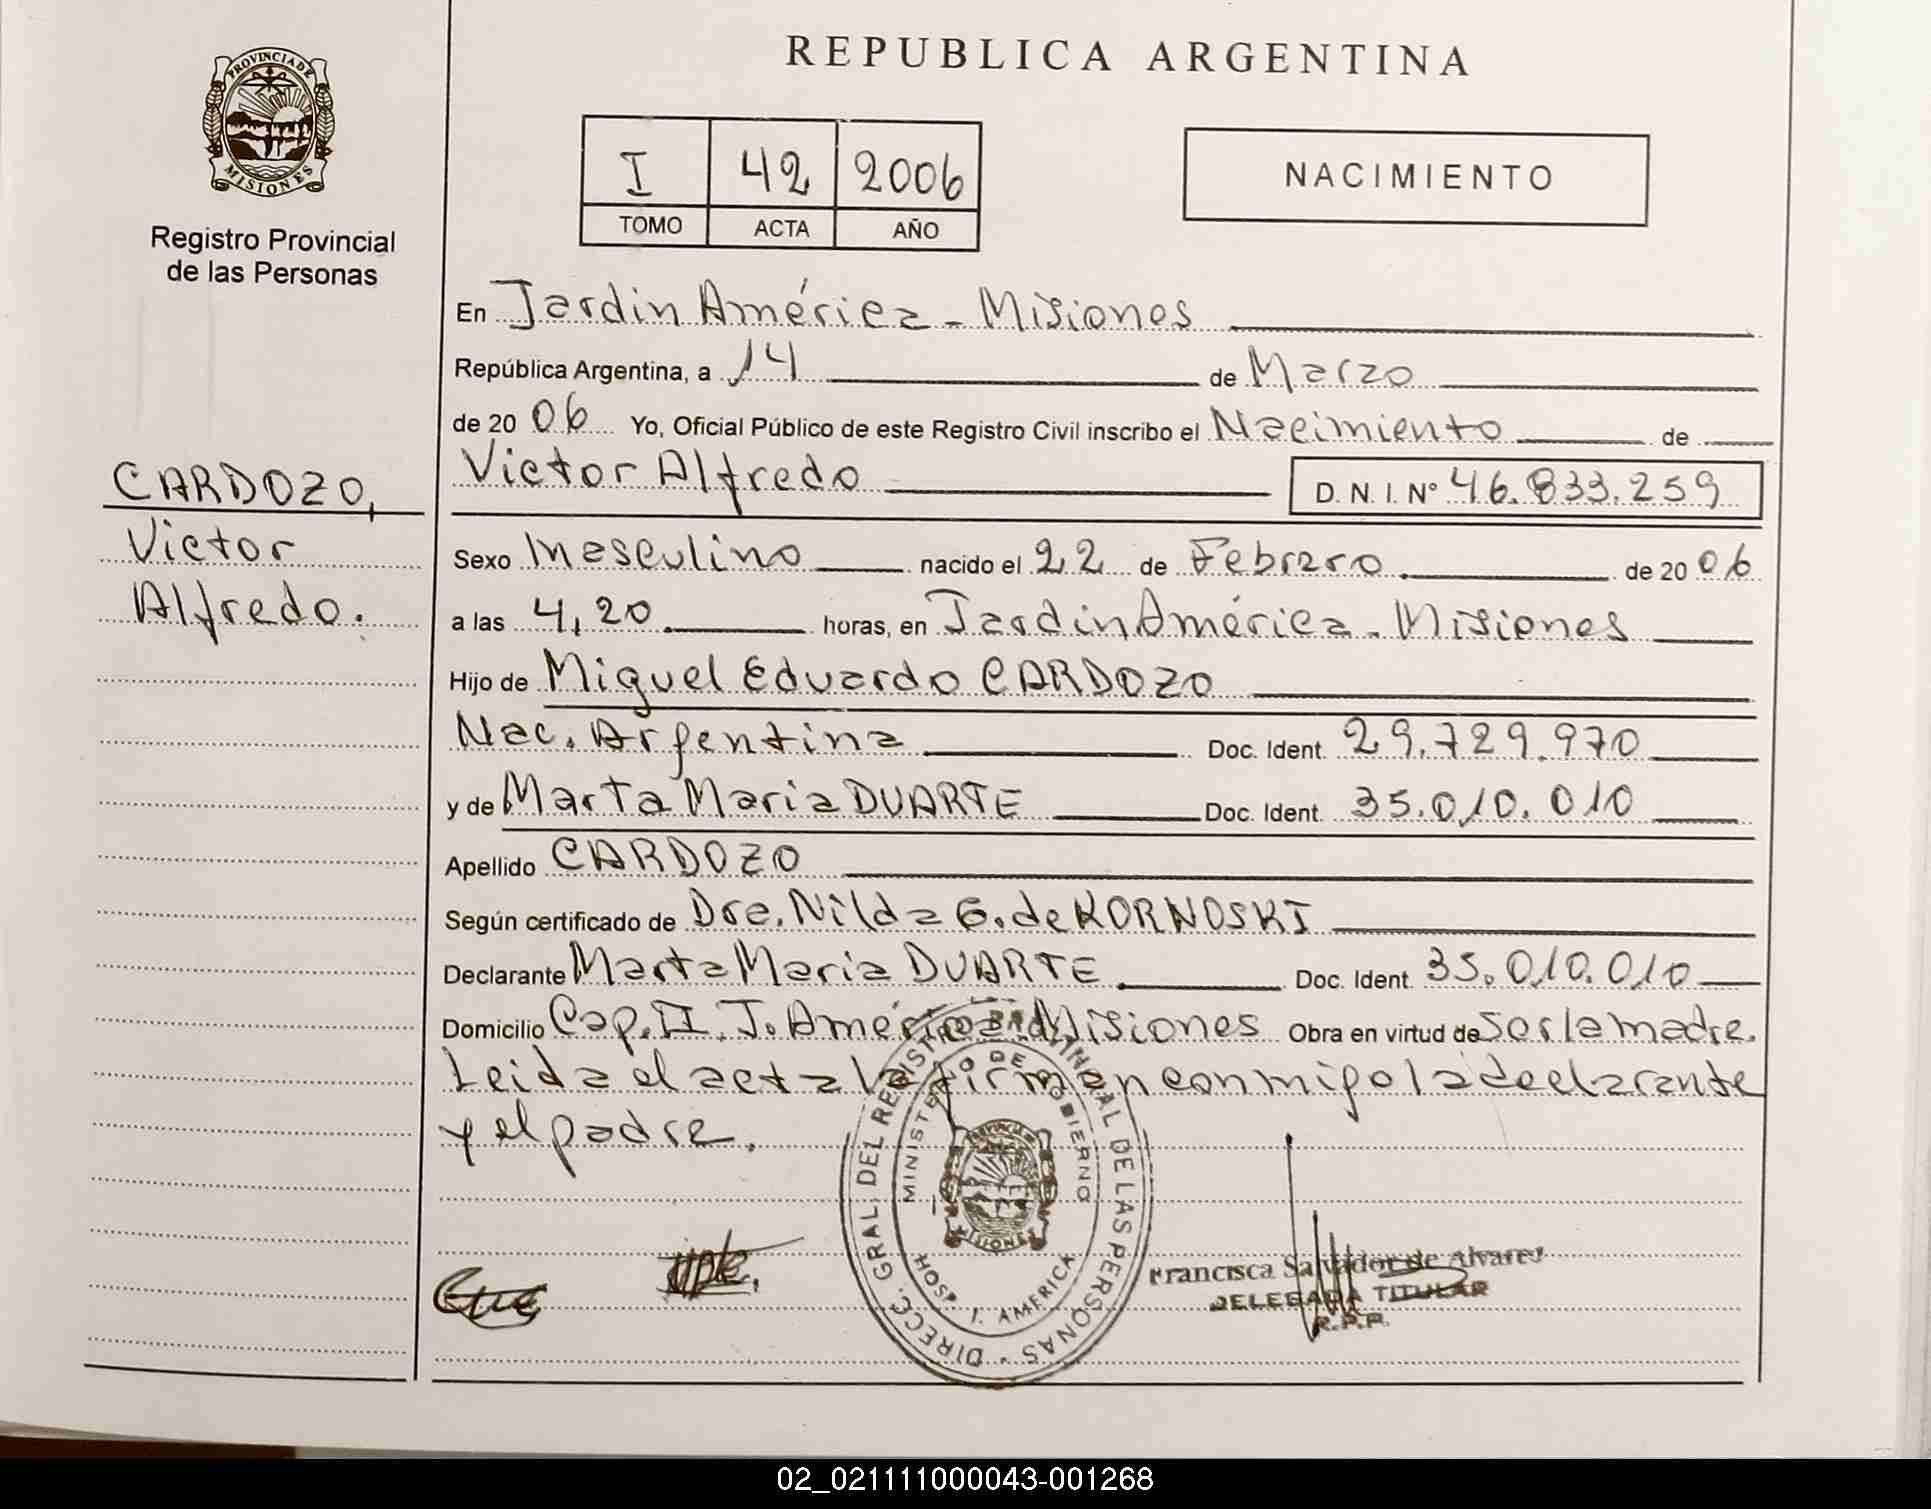 REPUBLICA ARGENTINA
PROVINCIA DE
MISIONES
Registro Provincial
de las Personas
I 42 2006
TOMO ACTA AÑO
NACIMIENTO
En Jardin América - Misiones
República Argentina, a 14 de Marzo
de 20 06 Yo, Oficial Público de este Registro Civil inscribo el Nacimiento de
Victor Alfredo D. N. I. Nº 46.833.259
CARDOZO,
Victor
Alfredo.
Sexo Masculino nacido el 22 de Febrero de 20 06
a las 4,20 horas, en Jardin América - Misiones
Hijo de Miguel Eduardo CARDOZO
Nac. Argentina Doc. Ident. 29.729.970
y de Marta Maria DUARTE Doc. Ident. 35.010.010
Apellido CARDOZO
Según certificado de Dra. Nilda G. de KORNOSKI
Declarante Marta Maria DUARTE Doc. Ident. 35.010.010
Domicilio Cap. II. J. América Misiones Obra en virtud de ser la madre.
Leida el acta la firman conmigo la declarante
y el padre.
DIRECC. GRAL. DEL REGISTRO PROVINCIAL DE LAS PERSONAS
MINISTERIO DE GOBIERNO
MISIONES
HOSP. J. AMERICA
Francisca Salvador de Alvarez
DELEGADA TITULAR
R.P.P.
02_021111000043-001268